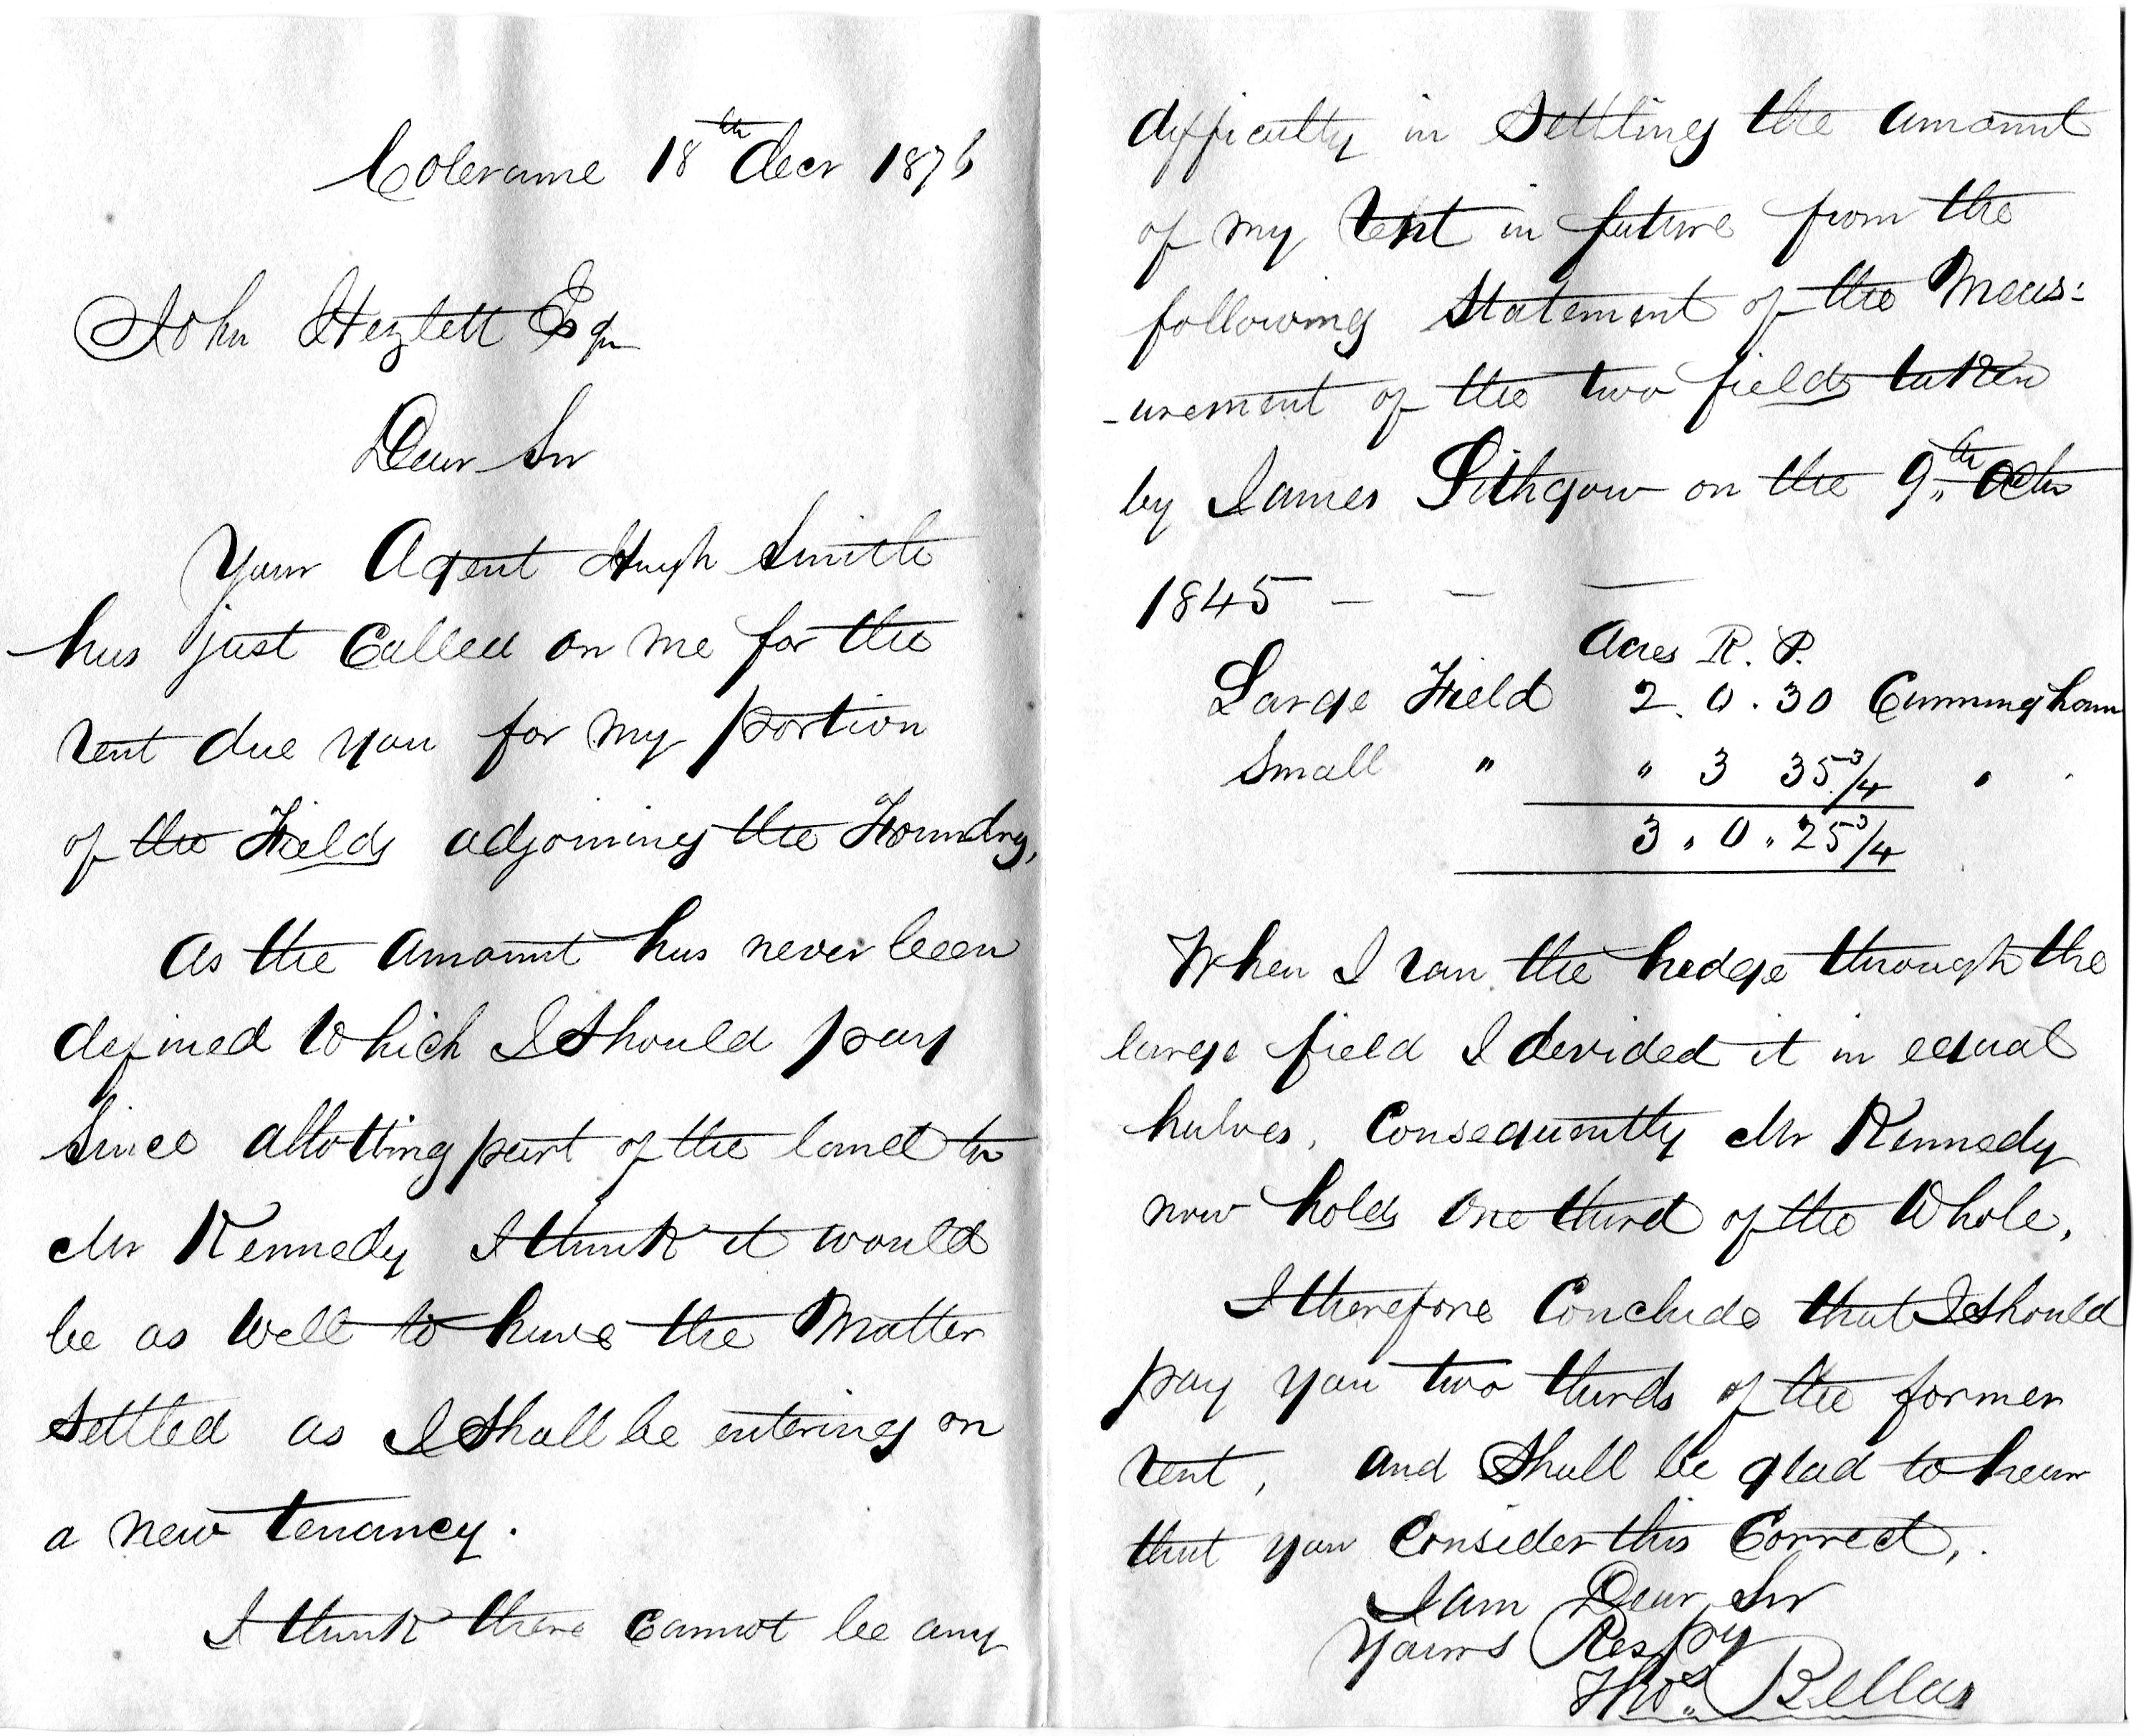 Coleraine 18th Decr 1876
John Hezlett Esqr
Dear Sir
Your Agent Hugh Smith
has just Called on me for the
rent due you for my portion
of the Fields adjoining the Foundry,
As the Amount has never been
defined Which I Should pay
Since allotting part of the land to
Mr Kennedy I think it would
be as Well to have the Matter
Settled as I Shall be entering on
a new tenancy.
I think there Cannot be any
difficulty in Settling the Amount
of my Rent in future from the
following Statement of the Meas:
-urement of the two fields taken
by James Lithgow on the 9th Octr
1845 — — —
Acres R. P.
Large Field 2. 0. 30 Cunningham
Small " " 3 35 3/4 "
3. 0. 25 3/4
When I ran the hedge through the
large field I devided it in equal
halves, Consequently Mr Kennedy
now holds One third of the Whole,
I therefore Conclude that I Should
pay you two thirds of the former
rent, and Shall be glad to hear
that you Consider this Correct,.
I am Dear Sir
Yours Respy
Thos. Bellas